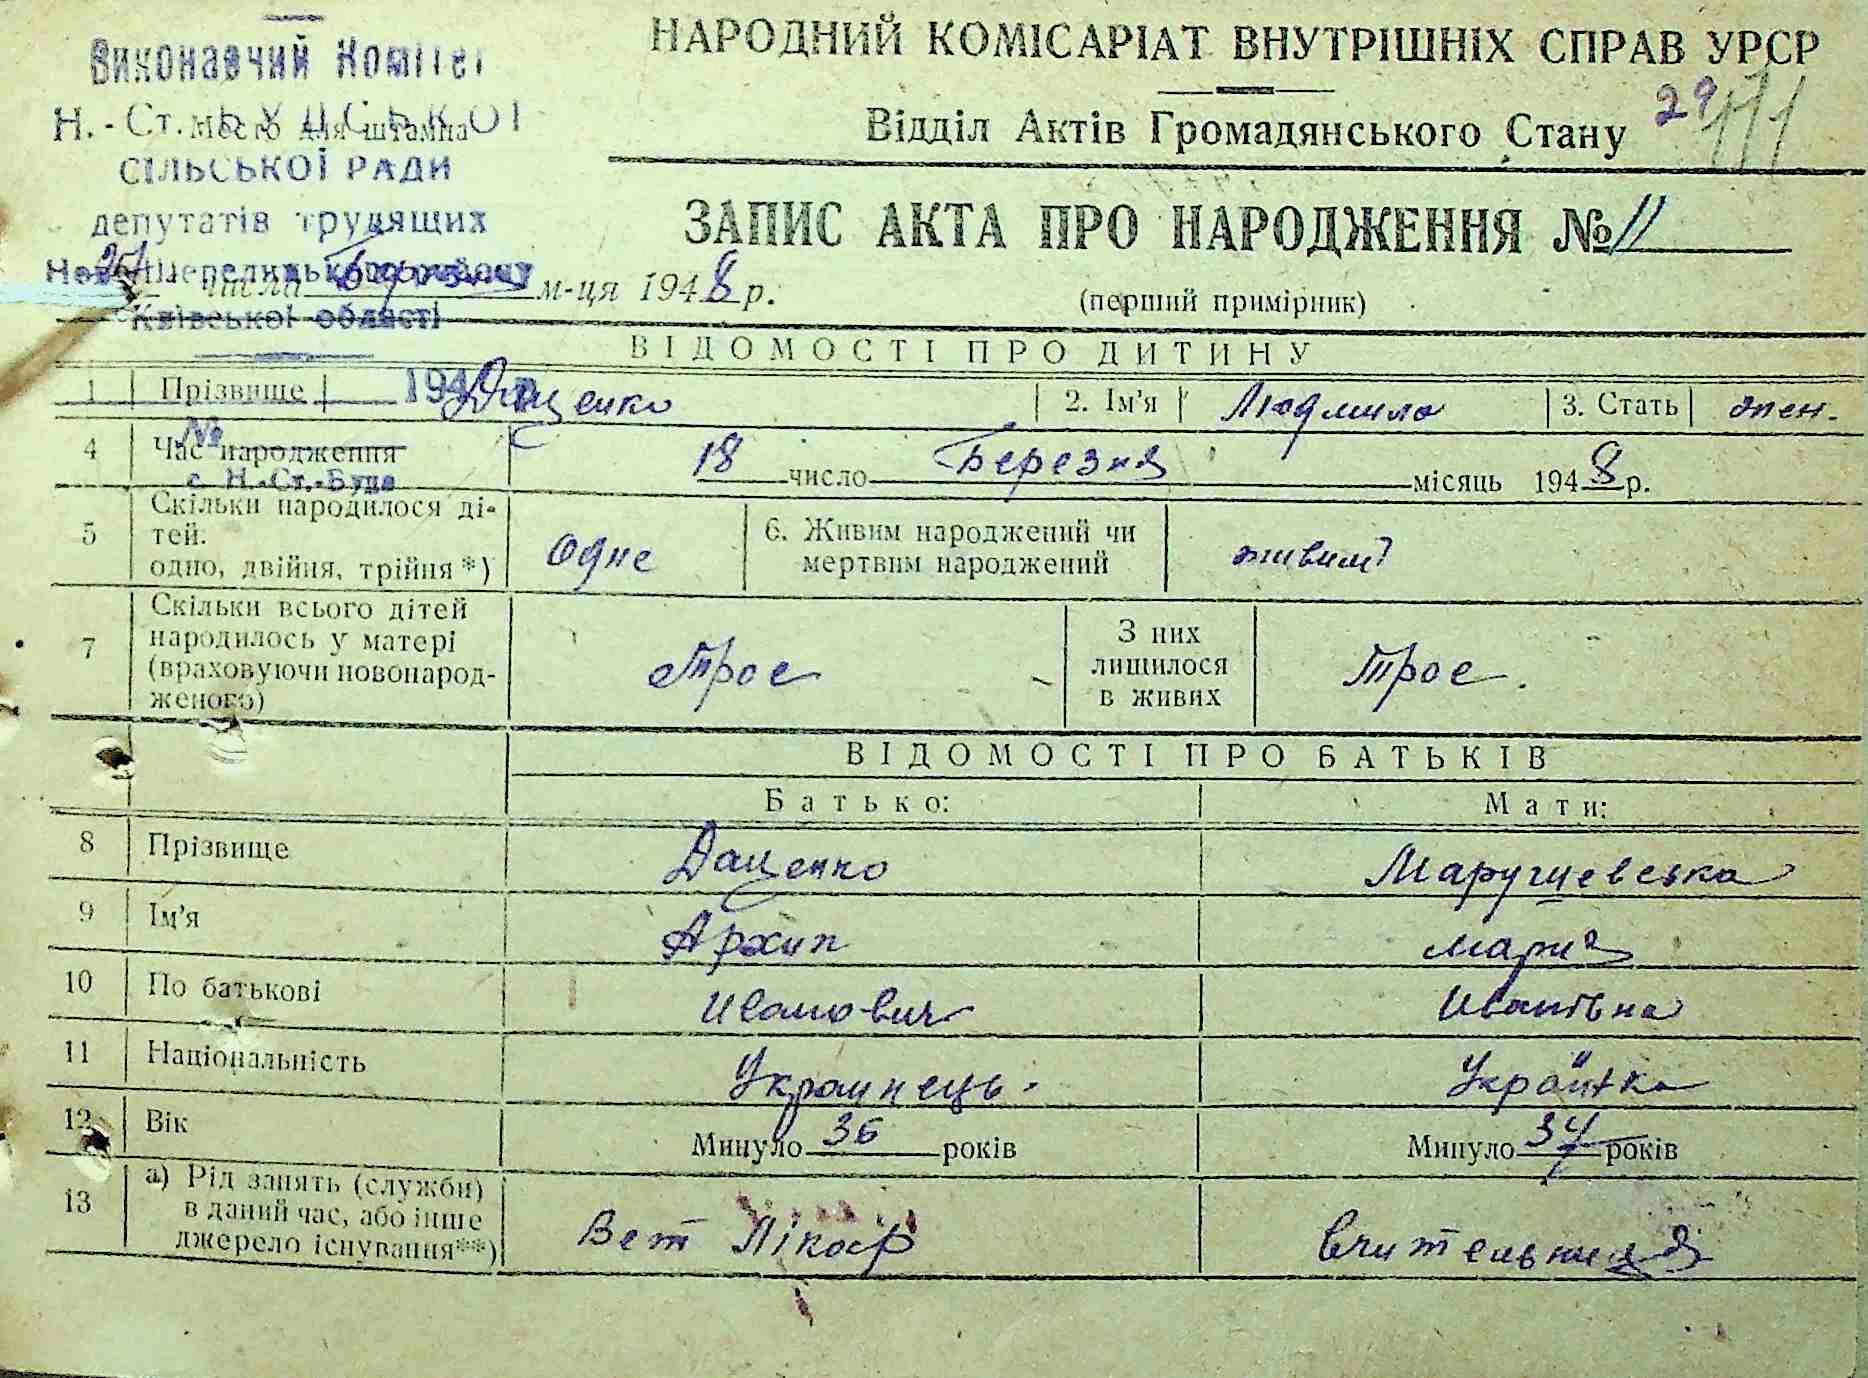 Виконавчий Комітет
Н.-Ст.-БУДСЬКОЇ
Місце для штампа
СІЛЬСЬКОЇ РАДИ
депутатів трудящих
Київської області
194 р.
№
с. Н.-Ст.-Буда
НАРОДНИЙ КОМІСАРІАТ ВНУТРІШНІХ СПРАВ УРСР
Відділ Актів Громадянського Стану
29
ЗАПИС АКТА ПРО НАРОДЖЕННЯ № 11
числа Березня м-ця 1948 р.
(перший примірник)
ВІДОМОСТІ ПРО ДИТИНУ
1 Прізвище Даценко 2. Ім'я Людмила 3. Стать жен.
4 Час народження 18 число Березня місяць 1948 р.
5 Скільки народилося ді-
тей.
одно, двійня, трійня *) Одне 6. Живим народжений чи
мертвим народжений живим
7 Скільки всього дітей
народилось у матері
(враховуючи новонарод-
женого) Трое З них
лишилося
в живих Трое.
ВІДОМОСТІ ПРО БАТЬКІВ
Батько: Мати:
8 Прізвище Даценко Марущевська
9 Ім'я Архип Мария
10 По батькові Иванович Иванівна
11 Національність Украинець. Українка
12 Вік Минуло 36 років Минуло 34 років
13 а) Рід занять (служби)
в даний час, або інше
джерело існування**) Вет Лікар Вчителниця